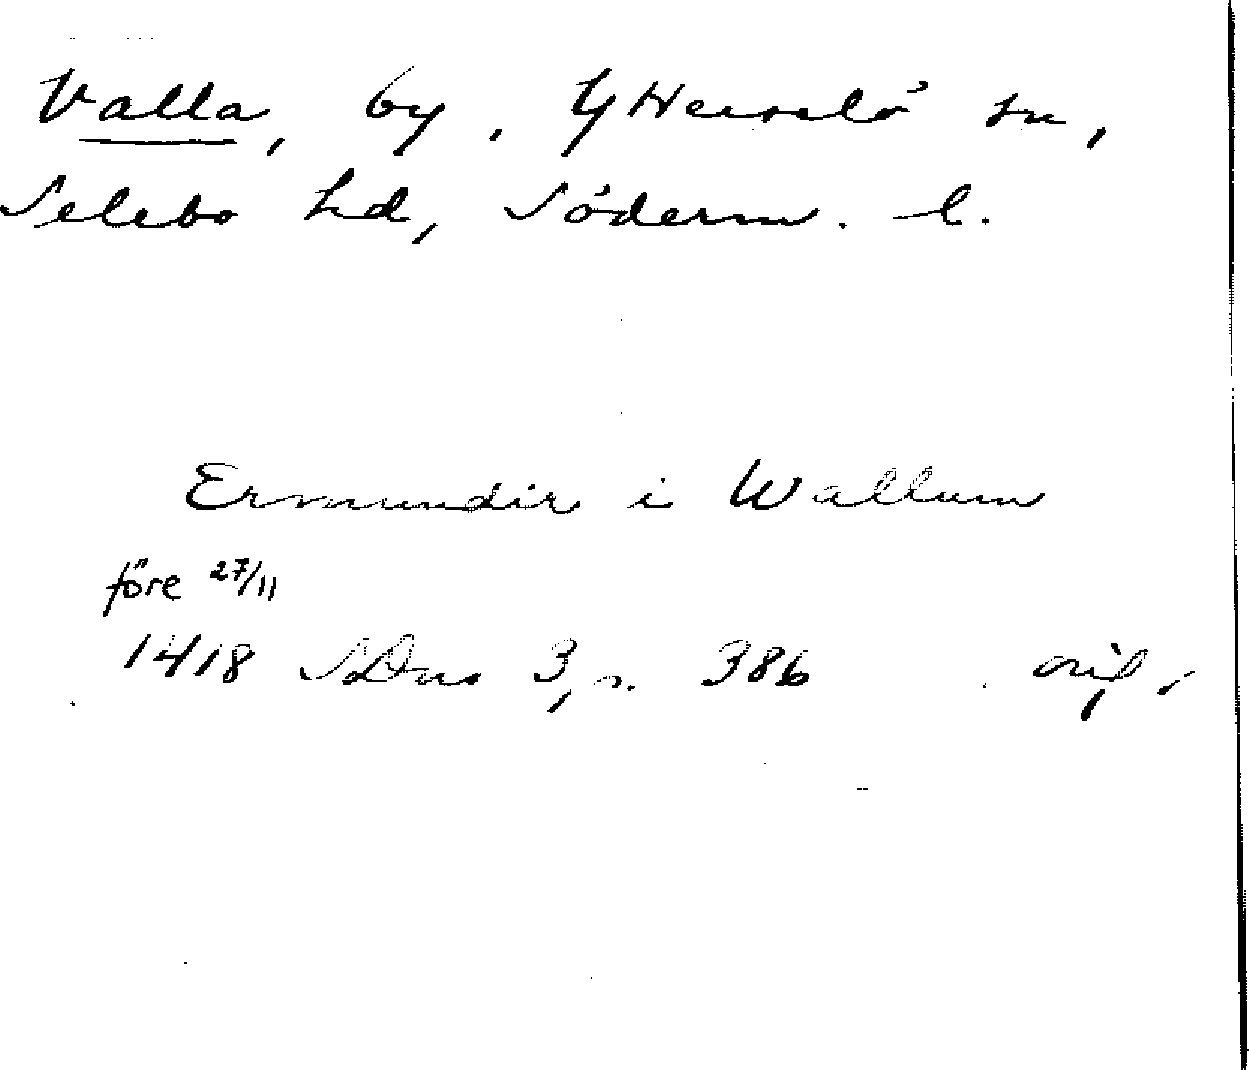 Valla, by, Ytterselö sn,
Selebo hd, Söderm. l.
Ermundir i Wallum
före 27/11
1418 SDns 3, s. 386 orig.